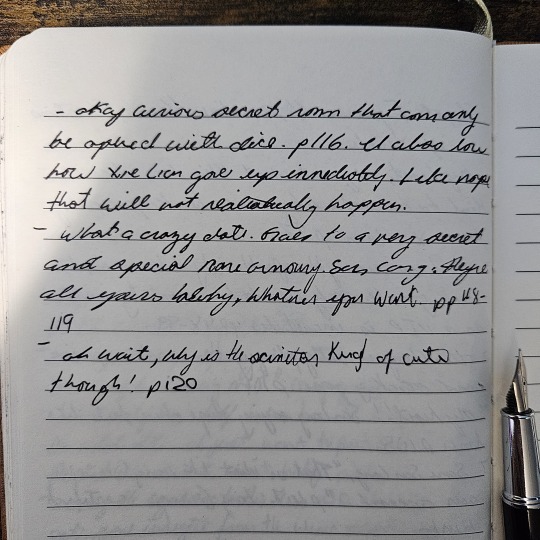 - okay curious secret room that can only
be opened with dice. p116. I also love
how Xie Lian gave up immediately. Like nope
that will not realistically happen.
- What a crazy date. Goes to a very secret
and special rare armoury. San Lang:
all yours baby, whatever you want. pp 118-
119
- oh wait, why is the scimitar kind of cute
though! p120